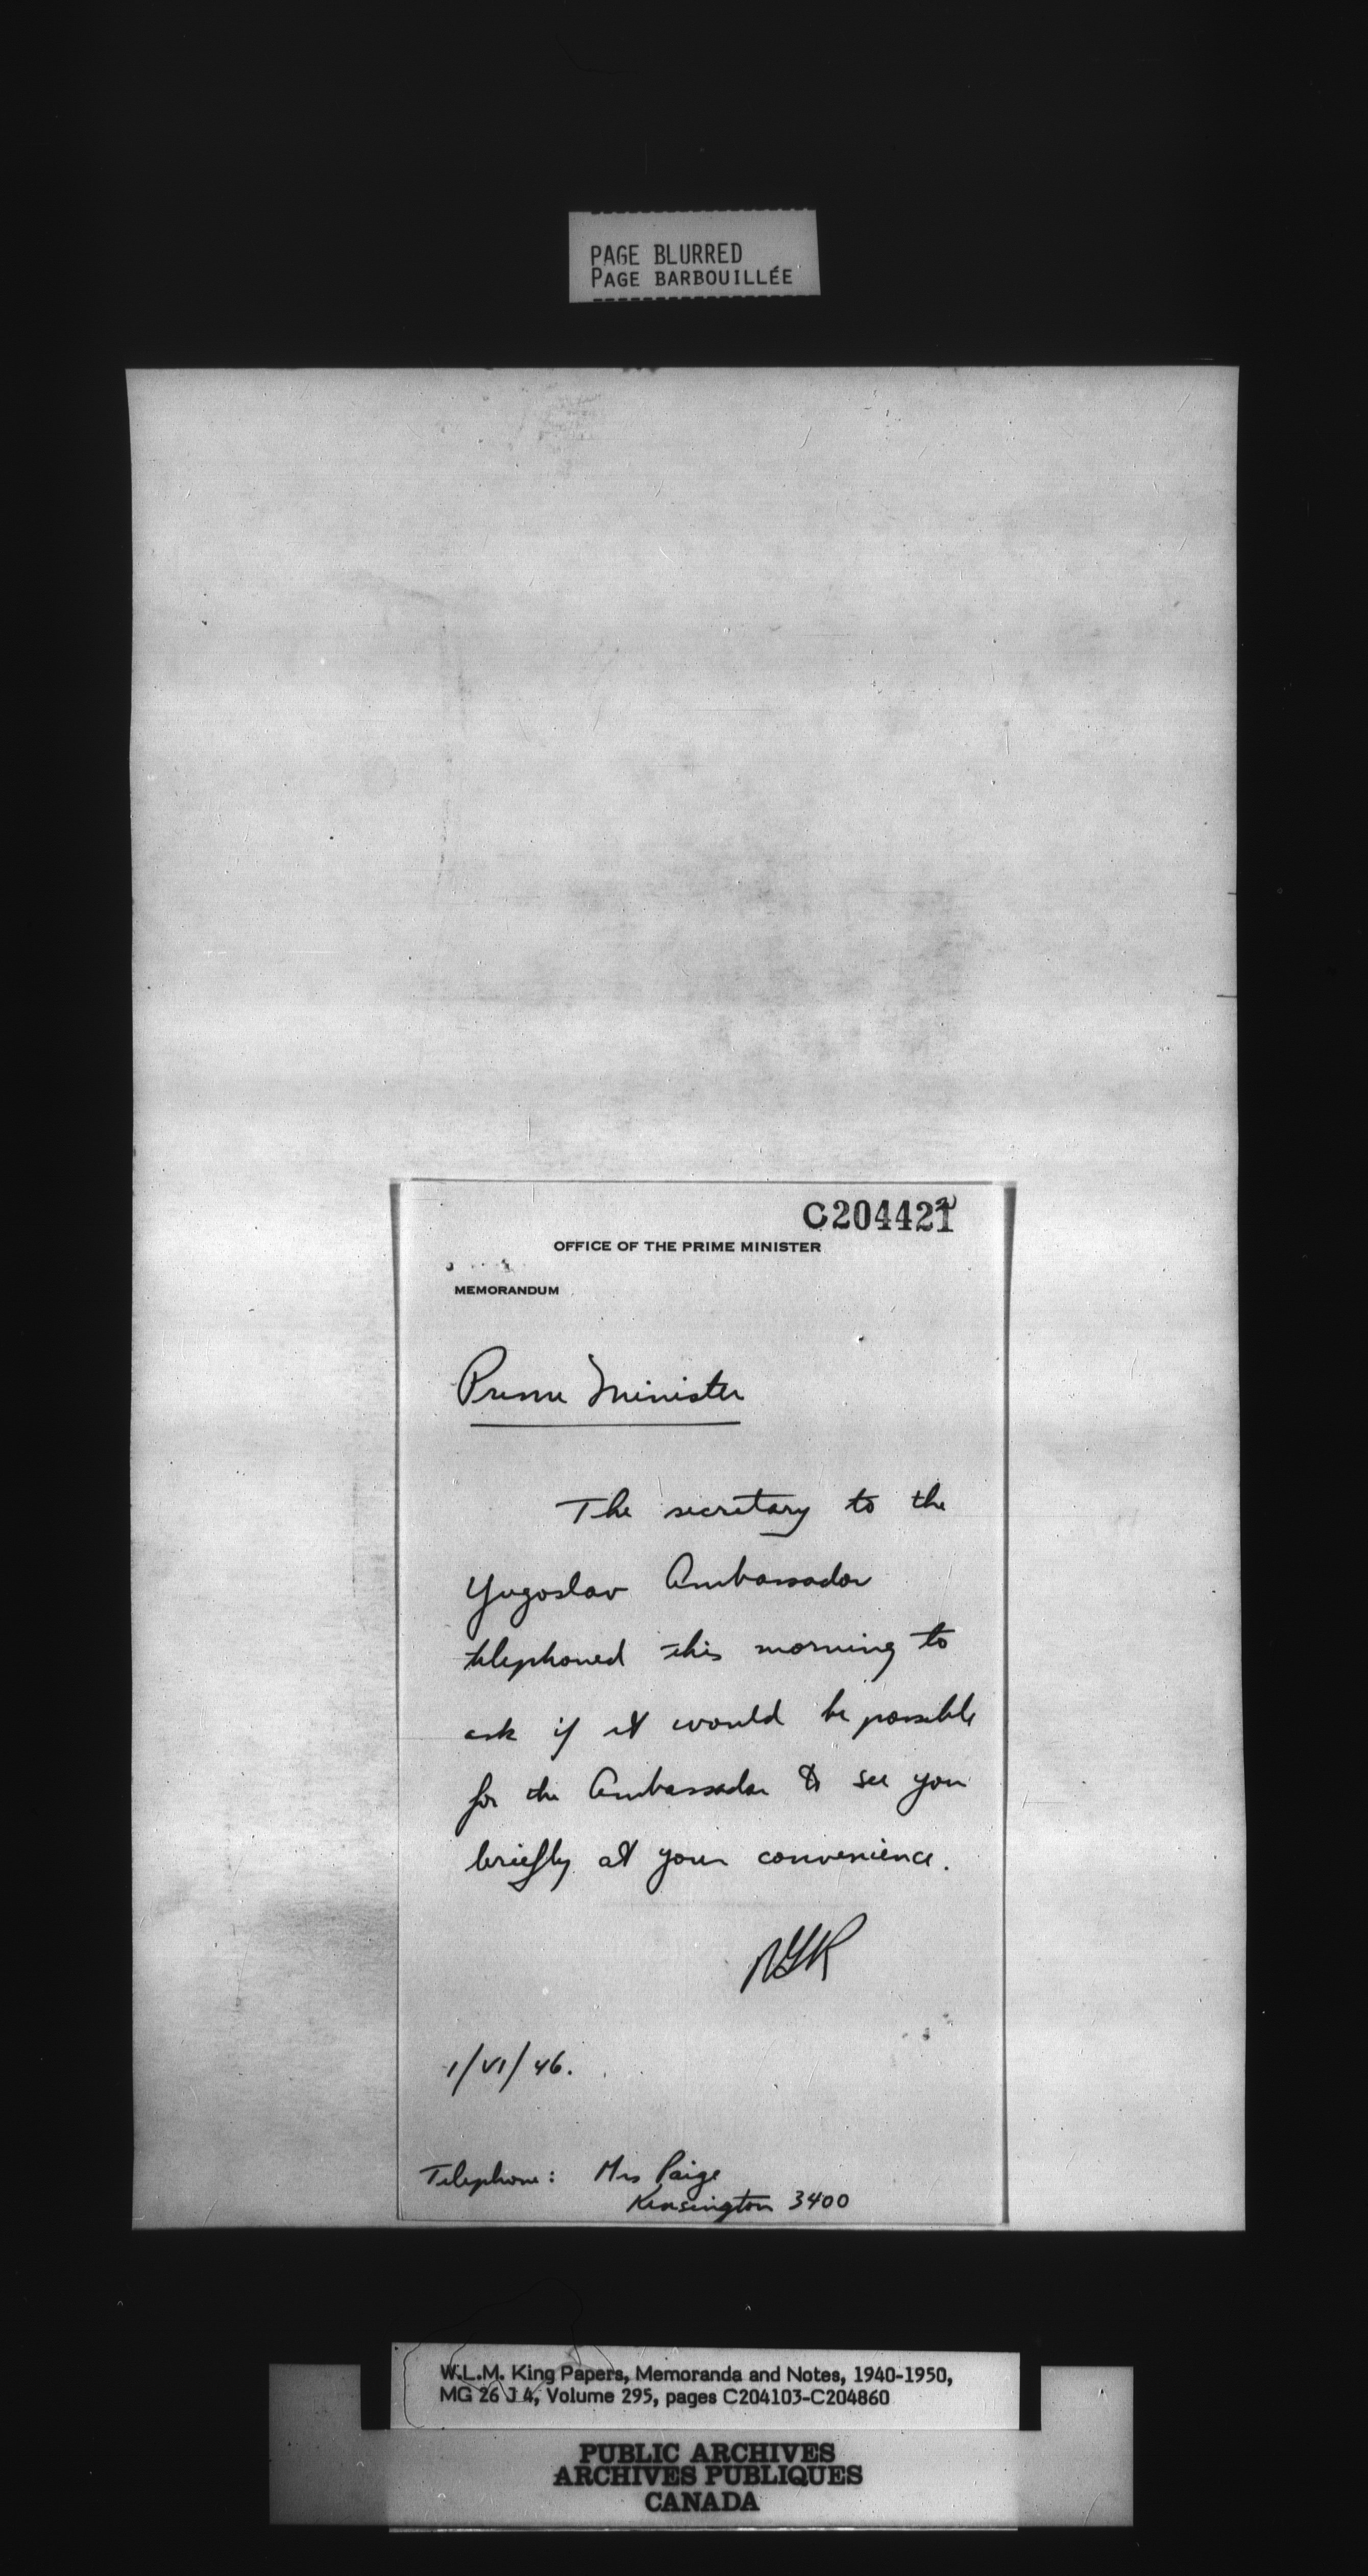 PAGE BLURRED
PAGE BARBOUILLÉE
C204422
OFFICE OF THE PRIME MINISTER
MEMORANDUM
Prime Minister
The secretary to the
Yugoslav Ambassador
telephoned this morning to
ask if it would be possible
for the Ambassador to see you
briefly at your convenience.
1/VI/46.
Telephone: Mrs Paige
Kensington 3400
W.L.M. King Papers, Memoranda and Notes, 1940-1950,
MG 26 J 4, Volume 295, pages C204103-C204860
PUBLIC ARCHIVES
ARCHIVES PUBLIQUES
CANADA